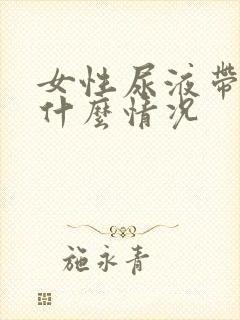 女性尿液帶
什麼情况
施永青